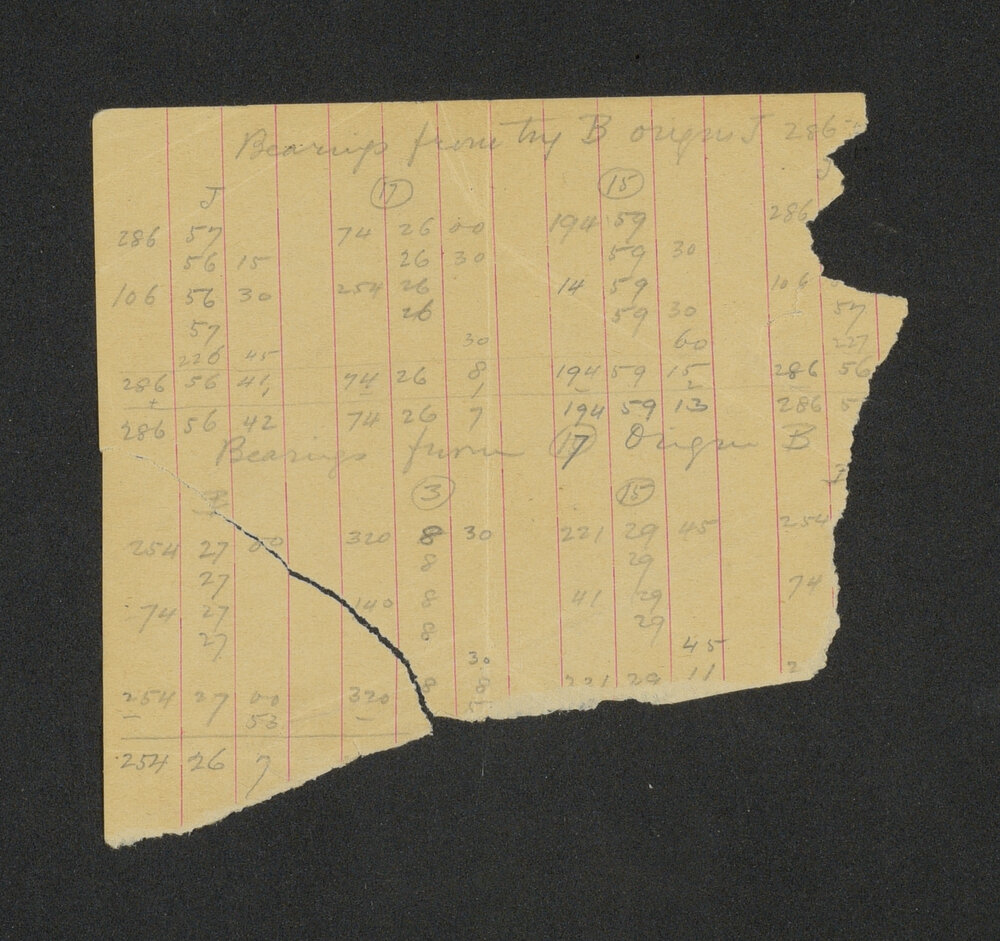 Bearings from try B origin J 286
J (17) (15)
286 57 74 26 00 194 59 286
56 15 26 30 59 30
106 56 30 254 26 14 59 106
57 26 59 30 57
226 45 30 60 227
286 56 41 74 26 8 194 59 15 286 56
1 2
286 56 42 74 26 7 194 59 13 286 5
Bearings from 17 Origin B
(3) (15)
254 27 00 320 8 30 221 29 45 254
27 8 29
74 27 140 8 41 29 74
27 8 29
30 45
254 27 00 320 8 8 221 29 11 2
53
254 26 7